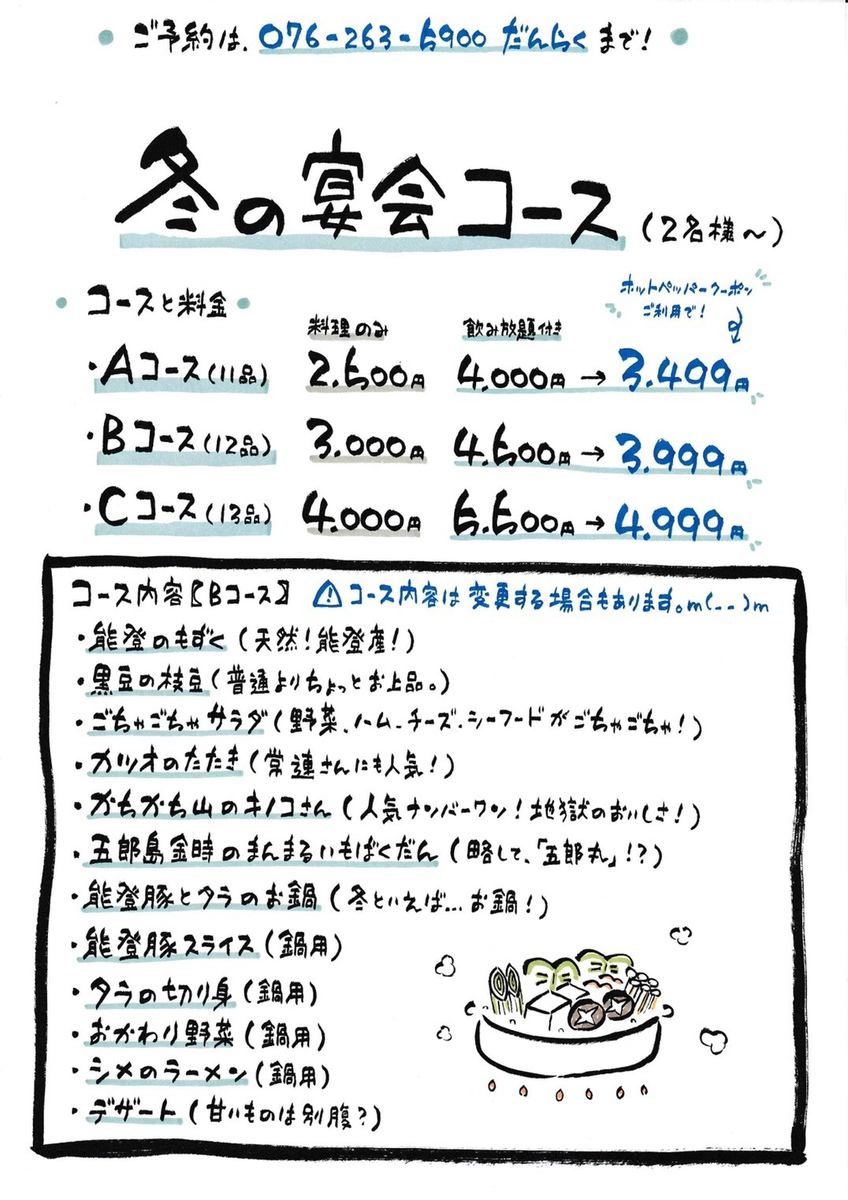 ご予約は、076-263-5900 だんらくまで!
冬の宴会コース(2名様〜)
ホットペッパークーポン
ご利用で!
コースと料金
料理のみ 飲み放題付き
・Aコース(11品) 2.500円 4.000円→3.499円
・Bコース(12品) 3.000円 4.500円→3.999円
・Cコース(13品) 4.000円 5.500円→4.999円
コース内容【Bコース】 ⚠コース内容は変更する場合もあります。m(--)m
・能登のもずく(天然!能登産!)
・黒豆の枝豆(普通よりちょっとお上品。)
・ごちゃごちゃサラダ(野菜、ハム、チーズ、シーフードがごちゃごちゃ!)
・カツオのたたき(常連さんにも人気!)
・かちかち山のキノコさん(人気ナンバーワン!地獄のおいしさ!)
・五郎島金時のまんまるいもばくだん(略して、「五郎丸」!?)
・能登豚とタラのお鍋(冬といえば…お鍋!)
・能登豚スライス(鍋用)
・タラの切り身(鍋用)
・おかわり野菜(鍋用)
・シメのラーメン(鍋用)
・デザート(甘いものは別腹?)